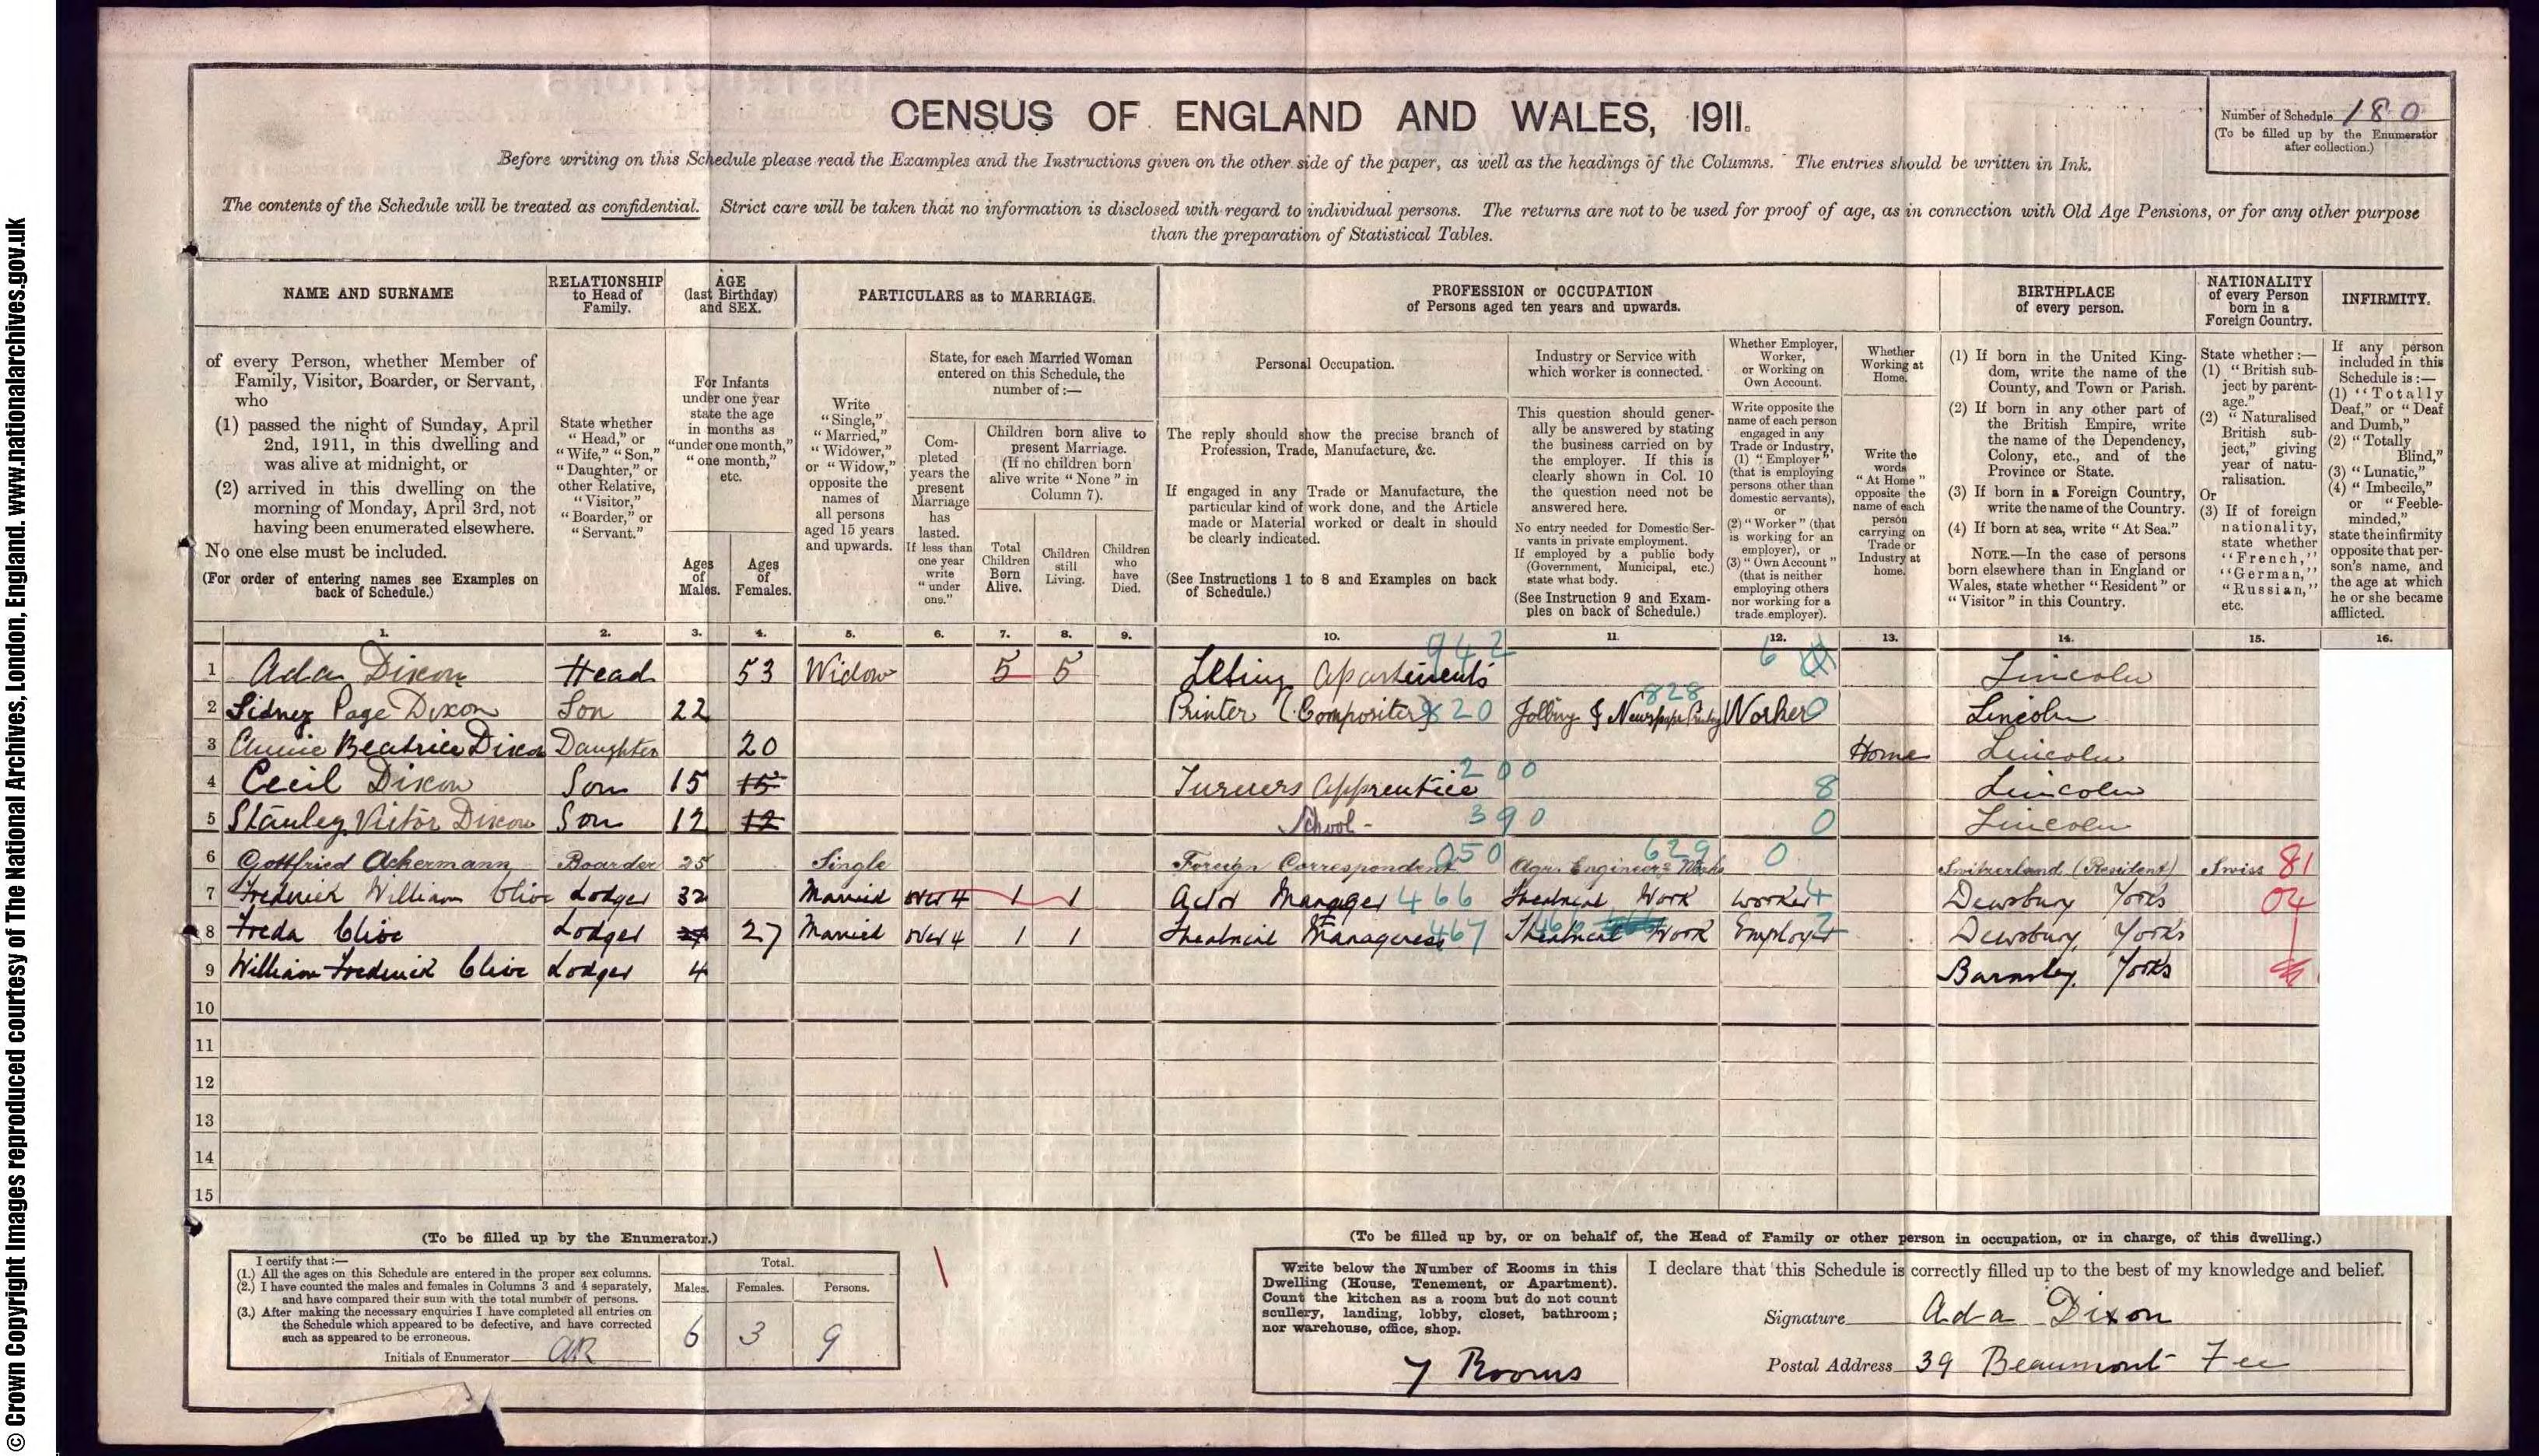 CENSUS OF ENGLAND AND WALES, 1911.
Number of Schedule 180
(To be filled up by the Enumerator
after collection.)
Before writing on this Schedule please read the Examples and the Instructions given on the other side of the paper, as well as the headings of the Columns. The entries should be written in Ink.
The contents of the Schedule will be treated as confidential. Strict care will be taken that no information is disclosed with regard to individual persons. The returns are not to be used for proof of age, as in connection with Old Age Pensions, or for any other purpose
than the preparation of Statistical Tables.
NAME AND SURNAME
of every Person, whether Member of
Family, Visitor, Boarder, or Servant,
who
(1) passed the night of Sunday, April
2nd, 1911, in this dwelling and
was alive at midnight, or
(2) arrived in this dwelling on the
morning of Monday, April 3rd, not
having been enumerated elsewhere.
No one else must be included.
(For order of entering names see Examples on
back of Schedule.)
RELATIONSHIP
to Head of
Family.
State whether
"Head," or
"Wife," "Son,"
"Daughter," or
other Relative,
"Visitor,"
"Boarder," or
"Servant."
AGE
(last Birthday)
and SEX.
For Infants
under one year
state the age
in months as
"under one month,"
"one month,"
etc.
Ages
of
Males.
Ages
of
Females.
PARTICULARS as to MARRIAGE.
Write
"Single,"
"Married,"
"Widower,"
or "Widow,"
opposite the
names of
all persons
aged 15 years
and upwards.
State, for each Married Woman
entered on this Schedule, the
number of:—
Com-
pleted
years the
present
Marriage
has
lasted.
If less than
one year
write
"under
one."
Children born alive to
present Marriage.
(If no children born
alive write "None" in
Column 7).
Total
Children
Born
Alive.
Children
still
Living.
Children
who
have
Died.
PROFESSION or OCCUPATION
of Persons aged ten years and upwards.
Personal Occupation.
The reply should show the precise branch of
Profession, Trade, Manufacture, &c.
If engaged in any Trade or Manufacture, the
particular kind of work done, and the Article
made or Material worked or dealt in should
be clearly indicated.
(See Instructions 1 to 8 and Examples on back
of Schedule.)
Industry or Service with
which worker is connected.
This question should gener-
ally be answered by stating
the business carried on by
the employer. If this is
clearly shown in Col. 10
the question need not be
answered here.
No entry needed for Domestic Ser-
vants in private employment.
If employed by a public body
(Government, Municipal, etc.)
state what body.
(See Instruction 9 and Exam-
ples on back of Schedule.)
Whether Employer,
Worker,
or Working on
Own Account.
Write opposite the
name of each person
engaged in any
Trade or Industry,
(1) "Employer"
(that is employing
persons other than
domestic servants),
or
(2) "Worker" (that
is working for an
employer), or
(3) "Own Account"
(that is neither
employing others
nor working for a
trade employer).
Whether
Working at
Home.
Write the
words
"At Home"
opposite the
name of each
person
carrying on
Trade or
Industry at
home.
BIRTHPLACE
of every person.
(1) If born in the United King-
dom, write the name of the
County, and Town or Parish.
(2) If born in any other part of
the British Empire, write
the name of the Dependency,
Colony, etc., and of the
Province or State.
(3) If born in a Foreign Country,
write the name of the Country.
(4) If born at sea, write "At Sea."
NOTE.—In the case of persons
born elsewhere than in England or
Wales, state whether "Resident" or
"Visitor" in this Country.
NATIONALITY
of every Person
born in a
Foreign Country.
State whether:—
(1) "British sub-
ject by parent-
age."
(2) "Naturalised
British sub-
ject," giving
year of natu-
ralisation.
Or
(3) If of foreign
nationality,
state whether
"French,"
"German,"
"Russian,"
etc.
INFIRMITY.
If any person
included in this
Schedule is:—
(1) "Totally
Deaf," or "Deaf
and Dumb,"
(2) "Totally
Blind,"
(3) "Lunatic,"
(4) "Imbecile,"
or "Feeble-
minded,"
state the infirmity
opposite that per-
son's name, and
the age at which
he or she became
afflicted.
1. 2. 3. 4. 5. 6. 7. 8. 9. 10. 11. 12. 13. 14. 15. 16.
1 Ada Dixon Head 53 Widow 5 5 Letting Apartments 942 6 Lincoln
2 Sidney Page Dixon Son 22 Printer (Compositer) 820 Jobbing & Newspaper Printing 828 Worker 0 Lincoln
3 Annie Beatrice Dixon Daughter 20 Home Lincoln
4 Cecil Dixon Son 15 15 Turners Apprentice 200 8 Lincoln
5 Stanley Victor Dixon Son 12 12 School 390 0 Lincoln
6 Gottfried Ackermann Boarder 25 Single Foreign Correspondent 050 Agri. Engineers Works 629 0 Switzerland (Resident) Swiss 81
7 Frederick William Clive Lodger 32 Married over 4 1 1 Actor Manager 466 Theatrical Work Worker 4 Dewsbury Yorks 04
8 Freda Clive Lodger 27 27 Married over 4 1 1 Theatrical Manageress 467 Theatrical Work Employer Dewsbury, Yorks
9 William Frederick Clive Lodger 4 Barnsley. Yorks
10
11
12
13
14
15
(To be filled up by the Enumerator.)
I certify that:—
(1.) All the ages on this Schedule are entered in the proper sex columns.
(2.) I have counted the males and females in Columns 3 and 4 separately,
and have compared their sum with the total number of persons.
(3.) After making the necessary enquiries I have completed all entries on
the Schedule which appeared to be defective, and have corrected
such as appeared to be erroneous.
Initials of Enumerator AR
Total.
Males. Females. Persons.
6 3 9
(To be filled up by, or on behalf of, the Head of Family or other person in occupation, or in charge, of this dwelling.)
Write below the Number of Rooms in this
Dwelling (House, Tenement, or Apartment).
Count the kitchen as a room but do not count
scullery, landing, lobby, closet, bathroom;
nor warehouse, office, shop.
7 Rooms
I declare that this Schedule is correctly filled up to the best of my knowledge and belief.
Signature Ada Dixon
Postal Address 39 Beaumont Fee
© Crown Copyright Images reproduced courtesy of The National Archives, London, England. www.nationalarchives.gov.uk